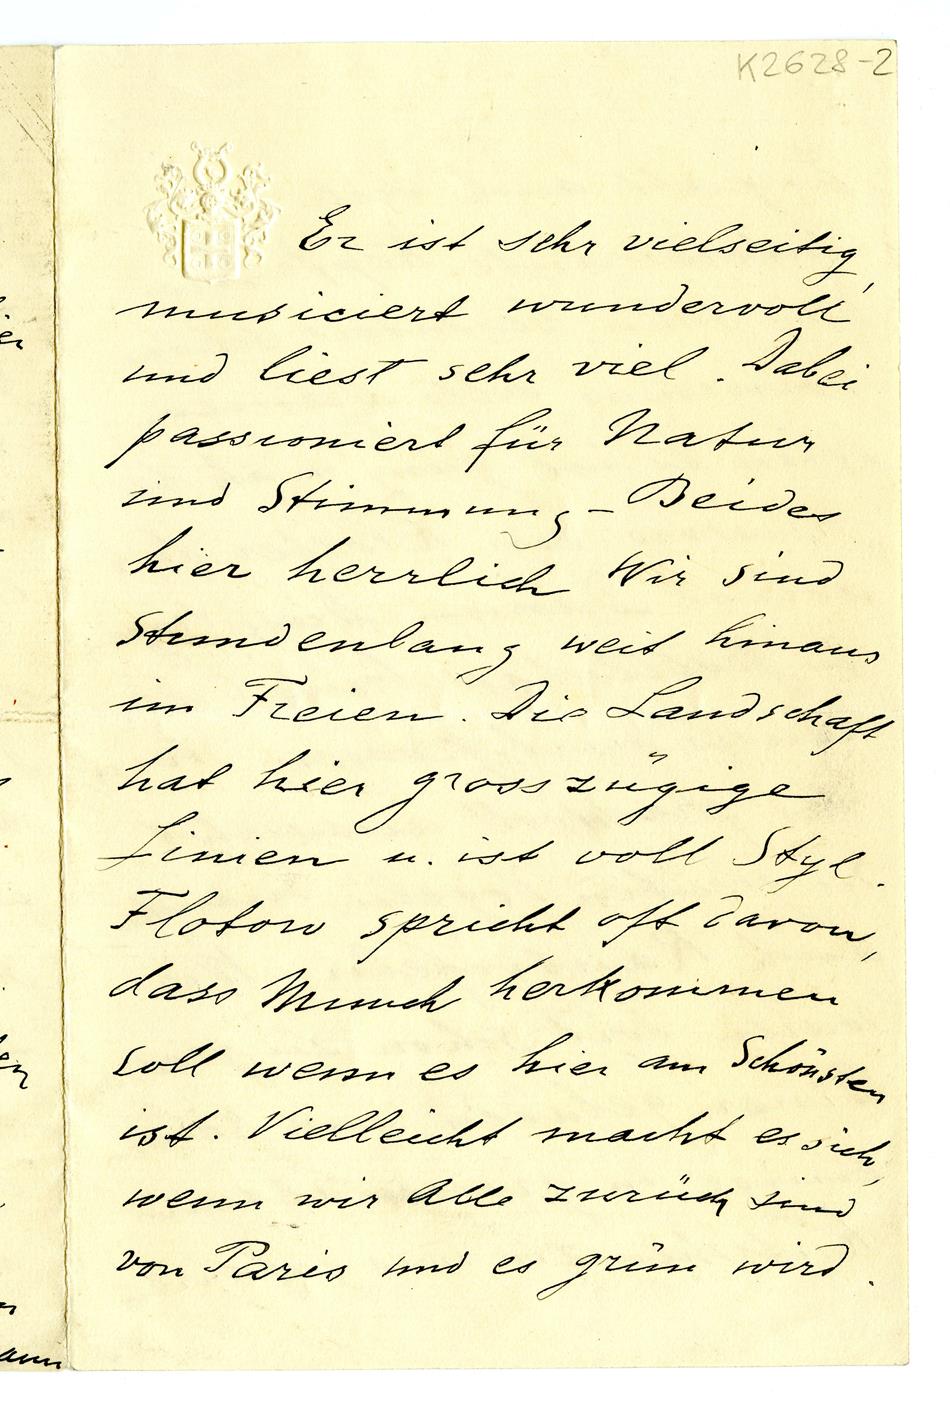 K2628-2
Er ist sehr vielseitig,
musiciert wundervoll
und liest sehr viel. Dabei
passioniert für Natur
und Stimmung – Beides
hier herrlich Wir sind
Stundenlang weit hinaus
im Freien. Die Landschaft
hat hier grosszügige
Linien u. ist voll Styl.
Flotow spricht oft davon,
dass Munch herkommen
soll wenn es hier am Schönsten
ist. Vielleicht macht es sich,
wenn wir Alle zurück sind
von Paris und es grün wird.